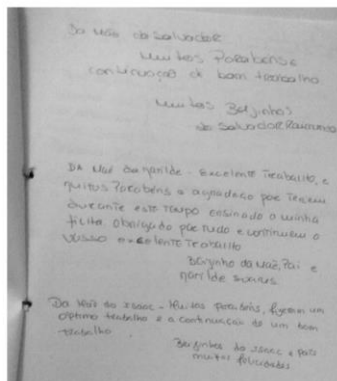 Da Mãe do Salvador
Muitos Parabéns e
continuação de bom trabalho
Muitos Beijinhos
do Salvador Raimundo
Da Mãe da Marilde - Excelente Trabalho, e
muitos Parabéns e agradeço por terem
durante este tempo ensinado a minha
filha. obrigado por tudo e continuem o
vosso excelente trabalho
Beijinho da Mãe, Pai e
Marilde
Da Mãe do Isaac - Muitos parabéns, fizeram um
óptimo trabalho e a continuação de um bom
trabalho.
Beijinhos do Isaac e pais
muitas felicidades